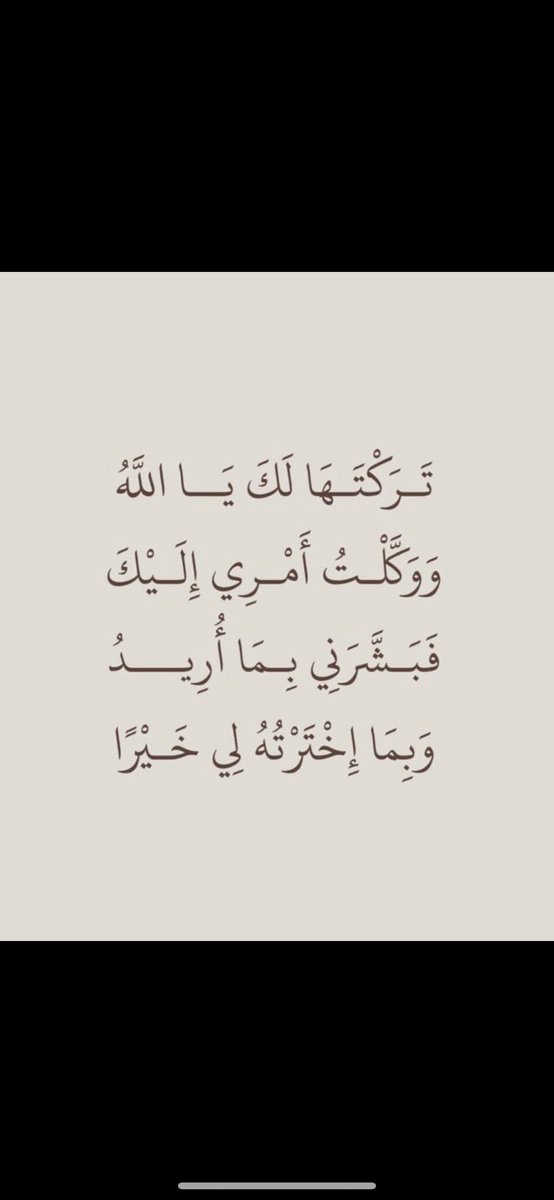 تَـرَكْتَـهَا لَكَ يَـــا اللَّهُ
وَوَكَّلْــتُ أَمْــرِي إِلَــيْكَ
فَبَــشَّرَنِي بِــمَا أُرِيــــدُ
وَبِمَا إِخْتَرْتُهُ لِي خَــيْرًا